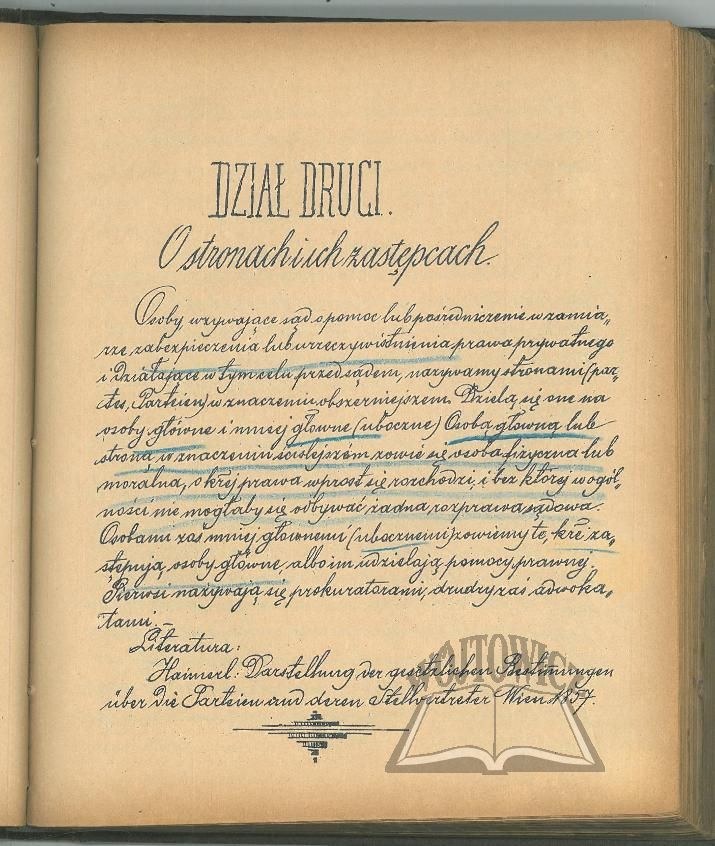 DZIAŁ DRUGI.
O stronach i ich zastępcach.
Osoby, wzywające sąd o pomoc lub pośredniczenie w zamia„
rze zabezpieczenia lub urzeczywistnienia prawa prywatnego
i działające w tym celu przed sądem, nazywamy stronami (par„
tes, Parteien) w znaczeniu obszerniejszem. Dzielą się one na
osoby główne i mniej główne (uboczne). Osobą główną lub
stroną w znaczeniu ściślejszem zowie się osoba fizyczna lub
moralna, o křej prawa wprost się rozchodzi, i bez której w ogól„
ności nie mogłaby się odbywać żadna rozprawa sądowa.
Osobami zaś mniej głównemi (ubocznemi) zowiemy te, kře za„
stępują osoby główne, albo im udzielają pomocy prawnej.
Pierwsi nazywają się prokuratorami, drudzy zaś adwoka„
tami.
Literatura:
Haimerl: Darstellung der gesetzlichen Bestim̄ungen
über die Parteien und deren Stellvertreter Wien 1857.
WÓJTOWICZ